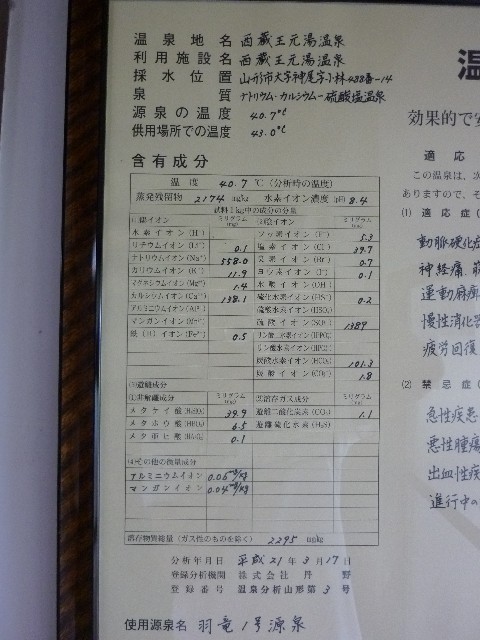 温泉地名 西蔵王元湯温泉
利用施設名 西蔵王元湯温泉
採水位置 山形市大字神尾字小林488番-14
泉質 ナトリウム・カルシウム-硫酸塩温泉
源泉の温度 40.7℃
供用場所での温度 43.0℃
含有成分
温度 40.7 ℃(分析時の温度)
蒸発残留物 2174 mg/kg 水素イオン濃度(pH) 8.4
試料1kg中の成分の分量
(1)陽イオン ミリグラム(mg) (2)陰イオン ミリグラム(mg)
水素イオン(H⁺) フッ素イオン(F⁻) 5.3
リチウムイオン(Li⁺) 0.1 塩素イオン(Cl⁻) 39.7
ナトリウムイオン(Na⁺) 558.0 臭素イオン(Br⁻) 0.7
カリウムイオン(K⁺) 11.9 ヨウ素イオン(I⁻) 0.1
マグネシウムイオン(Mg²⁺) 1.4 水酸イオン(OH⁻)
カルシウムイオン(Ca²⁺) 138.1 硫化水素イオン(HS⁻) 0.2
アルミニウムイオン(Al³⁺) 硫酸水素イオン(HSO₄⁻)
マンガンイオン(Mn²⁺) 硫酸イオン(SO₄²⁻) 1389
鉄(II)イオン(Fe²⁺) 0.5 リン酸二水素イオン(H₂PO₄⁻)
リン酸水素イオン(HPO₄²⁻)
炭酸水素イオン(HCO₃⁻) 101.3
炭酸イオン(CO₃²⁻) 1.8
(3)遊離成分
(1)非解離成分 ミリグラム(mg) (2)溶存ガス成分 ミリグラム(mg)
メタケイ酸(H₂SiO₃) 39.9 遊離二酸化炭素(CO₂) 1.1
メタホウ酸(HBO₂) 6.5 遊離硫化水素(H₂S)
メタ亜ヒ酸(HAsO₂) 0.1
(4)その他の微量成分
アルミニウムイオン 0.05mg/kg
マンガンイオン 0.04mg/kg
溶存物質総量(ガス性のものを除く) 2295 mg/kg
分析年月日 平成21年3月17日
登録分析機関 株式会社 丹野
登録番号 温泉分析山形第3号
使用源泉名 羽竜1号源泉
温
効果的で
適応
この温泉は、次
ありますので、そ
(1) 適応症(
動脈硬化症
神経痛、筋
運動麻痺
慢性消化器
疲労回復
(2) 禁忌症(
急性疾患
悪性腫瘍
出血性疾
進行中の